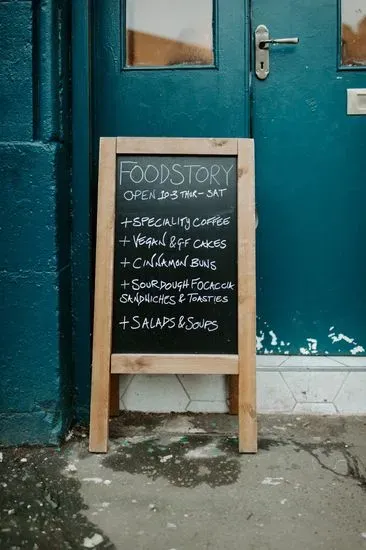 FOODSTORY
OPEN 10-3 THUR-SAT
+ SPECIALITY COFFEE
+ VEGAN & GF CAKES
+ CINNAMON BUNS
+ SOURDOUGH FOCACCIA
SANDWICHES & TOASTIES
+ SALADS & SOUPS